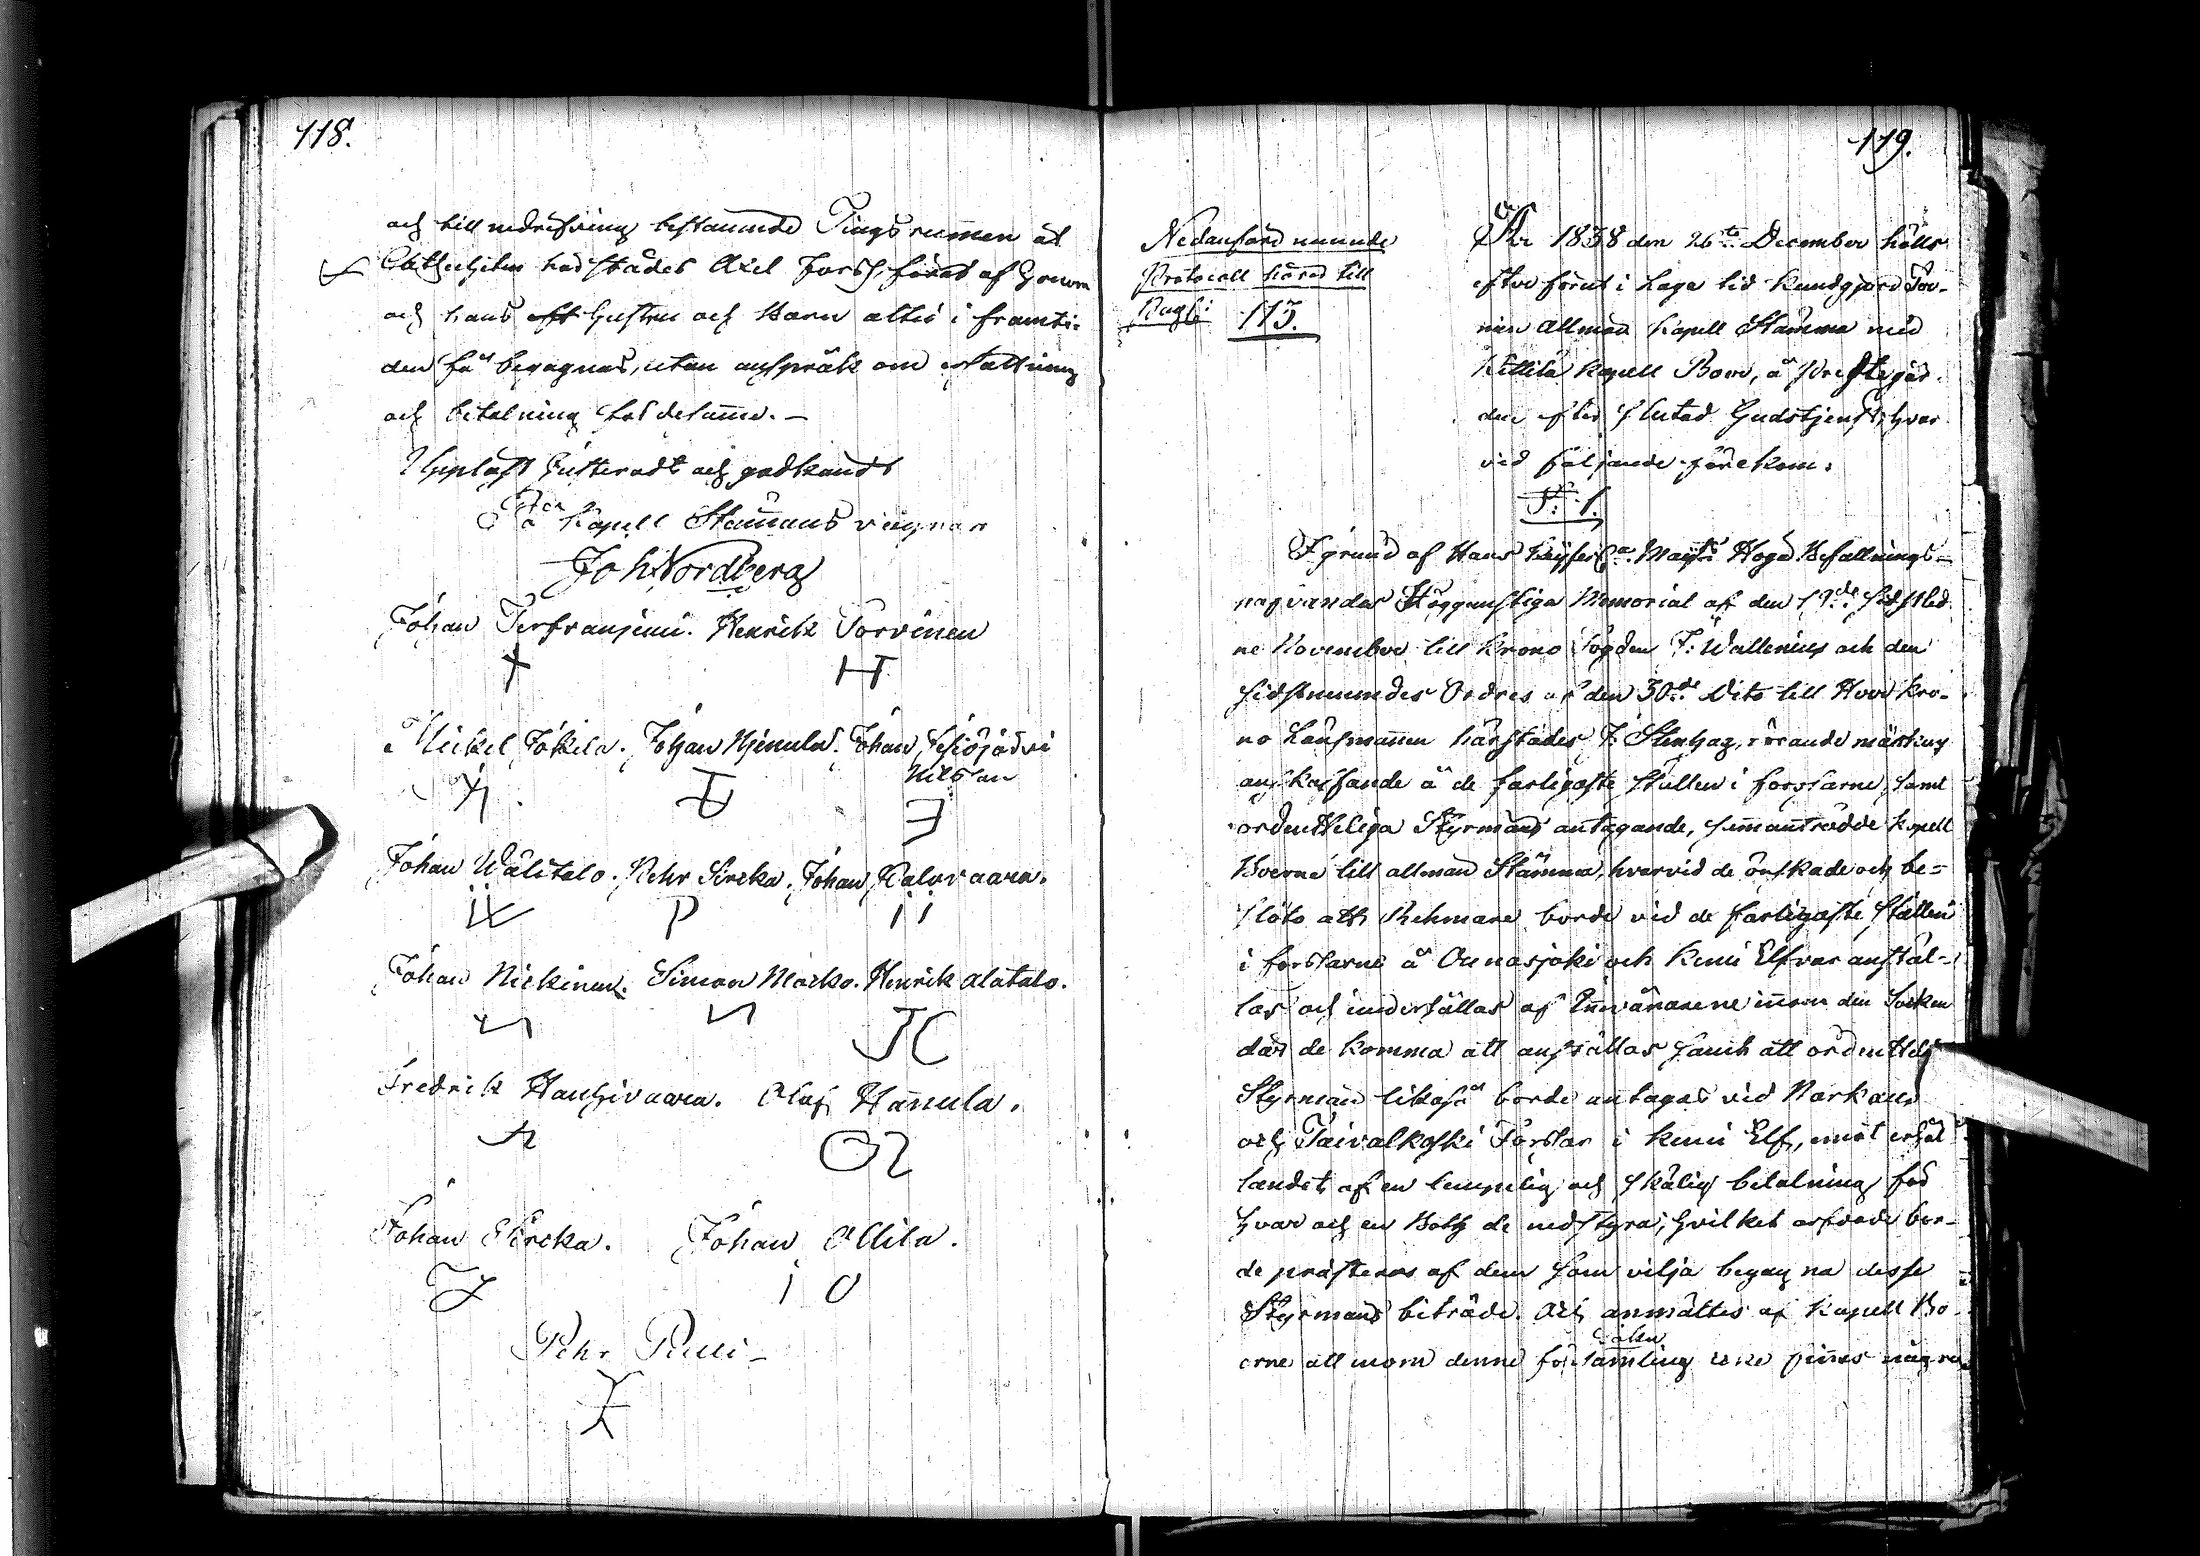 118.
och till
bestämde Tingsrummen at
härstädes Axel Forss, af
och hans Hustru och Barn alltid i framti-
den få begagnas, utan anspråk om ersättning
och betalning för desamme. –
Uppläst Justeradt och godkändt
På Kapell Stämmans vägnar
Joh Nordberg
Johan Henrik Torvinen
Mickel Jokela. Johan Johan
Nilsson
Johan Wälitalo. Pehr Sircka. Johan
Johan Niekinen. Simon Marko. Henrik Alatalo.
Fredrik Hanhivaara. Olof Hannula.
OH
Johan Sircka. Johan Ollila.
J O
Pehr
119.
Nedanföre nämnde
Protocoll hörer till
Pag: 115.
År 1838 den 26te December hölls
efter förut i laga tid kundgjord
allmän Kapell Stämma med
Kittilä Kapell Boer, å Prestegår-
den efter slutad Gudstjenst; hvar
vid följande förekom:
§. 1.
I grund af Hans Kejserl. Majts Höga Befallnings-
hafvandes Höggunstiga Memorial af den 19de sidstled-
ne November till Krono Fogden F. Wallenius och den
sidstnämndes Ordres af den 30de Dito till Herr Kro-
no Länsmannen härstädes J. Stenhag, rörande
anskaffande å de farligaste ställen i forssarne, samt
ordentteliga Styrmäns antagande, sammanträdde Kapell
Boerne till allmän Stämma, hvarvid de önskade och be-
slöto att Rehmare borde vid de farligaste ställen
i forssarne å Ounasjoki och Kemi Elfvar anstäl-
las och underhållas af Innevånarene innom den Socken
där de komma att anställas samt att ordentteliga
Styrmän likaså borde antagas vid Narkaus
och Taivalkoski Forssar i Kemi Elf, emot erhål-
landet af en lempelig och skälig betalning för
hvar och en Båth de nedstyra; hvilket arfvode bor-
de præsteras af dem som vilja begagna desse
Styrmäns biträde. Och anmältes af Kapell Bo-
erne att inom denne församling icke finnes några